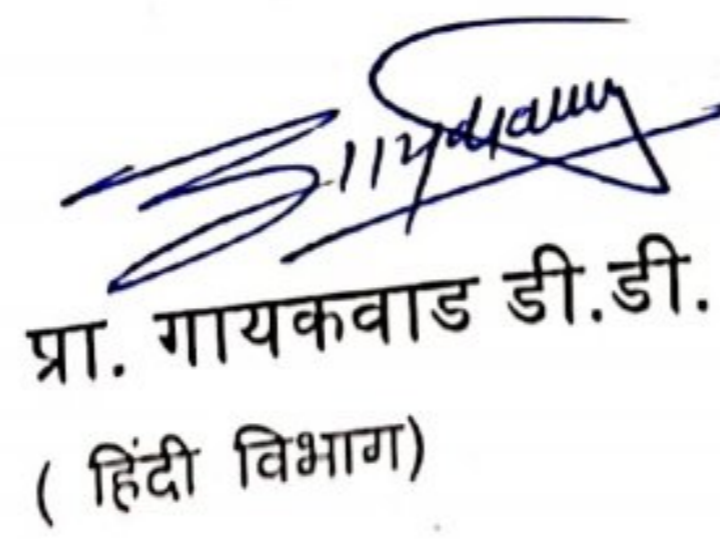 प्रा. गायकवाड डी.डी.
( हिंदी विभाग)